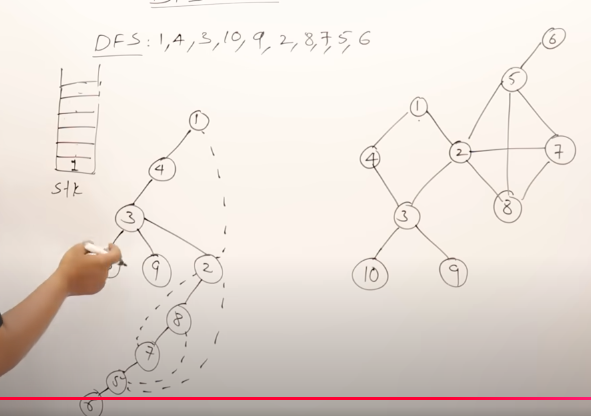 DFS: 1,4,3,10,9,2,8,7,5,6
1
stk
1
4
3
9
2
8
7
5
6
5
1
4
2
7
3
8
10
9